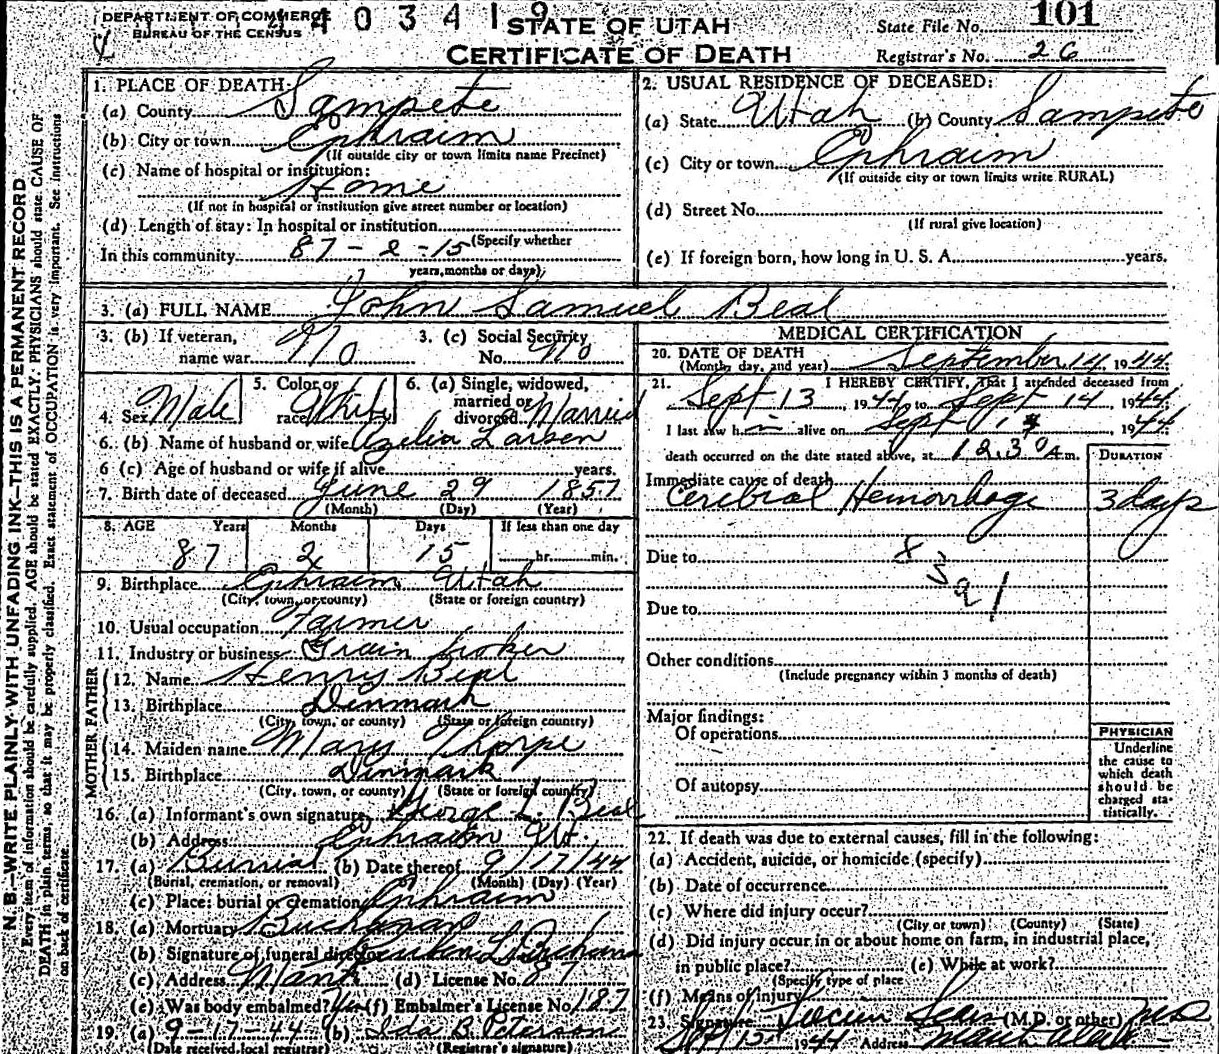 DEPARTMENT OF COMMERCE
BUREAU OF THE CENSUS
4 0 3 4 1 9
STATE OF UTAH
CERTIFICATE OF DEATH
State File No. 101
Registrar's No. 26
N.B.—WRITE PLAINLY WITH UNFADING INK—THIS IS A PERMANENT RECORD
Every item of information should be carefully supplied. AGE should be stated EXACTLY. PHYSICIANS should state CAUSE OF
DEATH in plain terms, so that it may be properly classified. Exact statement of OCCUPATION is very important. See instructions
on back of certificate.
1. PLACE OF DEATH:
(a) County Sampete
(b) City or town Ephraim
(If outside city or town limits name Precinct)
(c) Name of hospital or institution:
Home
(If not in hospital or institution give street number or location)
(d) Length of stay: In hospital or institution
(Specify whether
In this community 87-2-15
years, months or days)
2. USUAL RESIDENCE OF DECEASED:
(a) State Utah (b) County Sampete
(c) City or town Ephraim
(If outside city or town limits write RURAL)
(d) Street No.
(If rural give location)
(e) If foreign born, how long in U. S. A. years.
3. (a) FULL NAME John Samuel Beal
3. (b) If veteran, name war No
3. (c) Social Security No. No
4. Sex Male
5. Color or race White
6. (a) Single, widowed, married or divorced Married
6. (b) Name of husband or wife Azelia Larsen
6 (c) Age of husband or wife if alive years.
7. Birth date of deceased June 29 1857
(Month) (Day) (Year)
8. AGE Years Months Days If less than one day
87 2 15 hr. min.
9. Birthplace Ephraim Utah
(City, town, or county) (State or foreign country)
10. Usual occupation Farmer
11. Industry or business Grain broker
FATHER
12. Name Henry Beal
13. Birthplace Denmark
(City, town, or county) (State or foreign country)
MOTHER
14. Maiden name Mary Thorpe
15. Birthplace Denmark
(City, town, or county) (State or foreign country)
16. (a) Informant's own signature George L. Beal
(b) Address Ephraim Ut.
17. (a) Burrial (b) Date thereof 9/17/44
(Burial, cremation, or removal) (Month) (Day) (Year)
(c) Place: burial or cremation Ephraim
18. (a) Mortuary Buchanan
(b) Signature of funeral director
(c) Address Manti (d) License No. 87
(e) Was body embalmed? Yes (f) Embalmer's License No. 187
19. (a) 9-17-44 (b) Ida B. Peterson
(Date received local registrar) (Registrar's signature)
MEDICAL CERTIFICATION
20. DATE OF DEATH
(Month, day, and year) September 14, 1944
21. I HEREBY CERTIFY, That I attended deceased from
Sept 13, 1944 to Sept 14, 1944
I last saw h im alive on Sept 13 1944
death occurred on the date stated above, at 12.30 A m.
DURATION
Immediate cause of death
Cerebral Hemorrhage 3 days
Due to
Due to
Other conditions
(Include pregnancy within 3 months of death)
Major findings:
Of operations
Of autopsy
PHYSICIAN
Underline
the cause to
which death
should be
charged sta-
tistically.
22. If death was due to external causes, fill in the following:
(a) Accident, suicide, or homicide (specify)
(b) Date of occurrence
(c) Where did injury occur?
(City or town) (County) (State)
(d) Did injury occur in or about home on farm, in industrial place,
in public place? (e) While at work?
(Specify type of place
(f) Means of injury
23. Signature Lucien Sears (M.D. or other) MD
Sept 15 1944 Address Manti Utah